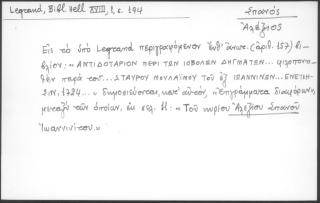 Legrand, Bibl. Hell. XVIII, 1, σ. 194
Σπανός
Ἀλέξιος
Εἰς τὸ ὑπὸ Legrand περιγραφόμενον ὑπ' ἀριθ. 157) βι-
βλίον: «ΑΝΤΙΔΟΤΑΡΙΟΝ ΠΕΡΙ ΤΩΝ ΙΟΒΟΛΩΝ ΔΗΓΜΑΤΩΝ... φιλοπονη-
θὲν παρὰ τοῦ... ΣΤΑΥΡΟΥ ΜΟΥΛΑΪΜΟΥ τοῦ ἐξ ΙΩΑΝΝΙΝΩΝ... ΕΝΕΤΙΗ-
ΣΙΝ, 1724... » δημοσιεύονται, κατ' αὐτόν, «ἐπιγράμματα διαφόρων,
μεταξὺ τῶν ὁποίων, ἐν σελ. 11: «Τοῦ κυρίου Ἀλεξίου Σπανοῦ
Ἰωαννινίτου.»